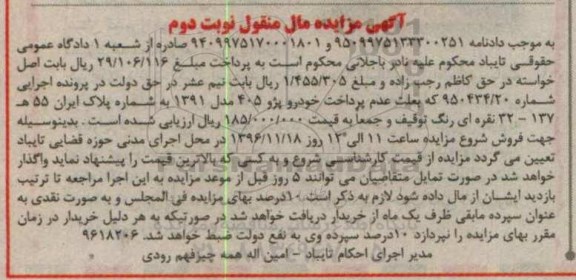 آگهی مزایده مال منقول نوبت دوم
به موجب دادنامه ۹۵۰۹۹۷۵۱۳۳۳۰۰۲۵۱ و ۹۴۰۹۹۷۵۱۷۰۰۰۱۸۰۱ صادره از شعبه ۱ دادگاه عمومی
حقوقی تایباد محکوم علیه نادر باجلانی محکوم است به پرداخت مبلغ ۲۹/۱۰۶/۱۱۶ ریال بابت اصل
خواسته در حق کاظم رجب زاده و مبلغ ۱/۴۵۵/۳۰۵ ریال بابت نیم عشر در حق دولت در پرونده اجرایی
شماره ۹۵۰۴۳۴/۲۰ که بعلت عدم پرداخت خودرو پژو ۴۰۵ مدل ۱۳۹۱ به شماره پلاک ایران ۵۵ هـ
۱۳۷ - ۳۲ نقره ای رنگ توقیف و جمعا به قیمت ۱۸۵/۰۰۰/۰۰۰ ریال ارزیابی شده است. بدینوسیله
جهت فروش شروع مزایده ساعت ۱۱ الی ۱۲ روز ۱۳۹۶/۱۱/۱۸ در محل اجرای مدنی حوزه قضایی تایباد
تعیین می گردد مزایده از قیمت کارشناسی شروع و به کسی که بالاترین قیمت را پیشنهاد نماید واگذار
خواهد شد در صورت تمایل متقاضیان می توانند ۵ روز قبل از موعد مزایده به این اجرا مراجعه تا ترتیب
بازدید ایشان از مال داده شود لازم به ذکر است ۱۰درصد بهای مزایده فی المجلس و به صورت نقدی به
عنوان سپرده مابقی ظرف یک ماه از خریدار دریافت خواهد شد در صورتیکه به هر دلیل خریدار در زمان
مقرر بهای مزایده را نپردازد ۱۰درصد سپرده وی به نفع دولت ضبط خواهد شد. ۹۶۱۸۲۰۶
مدیر اجرای احکام تایباد - امین اله همه چیزفهم رودی